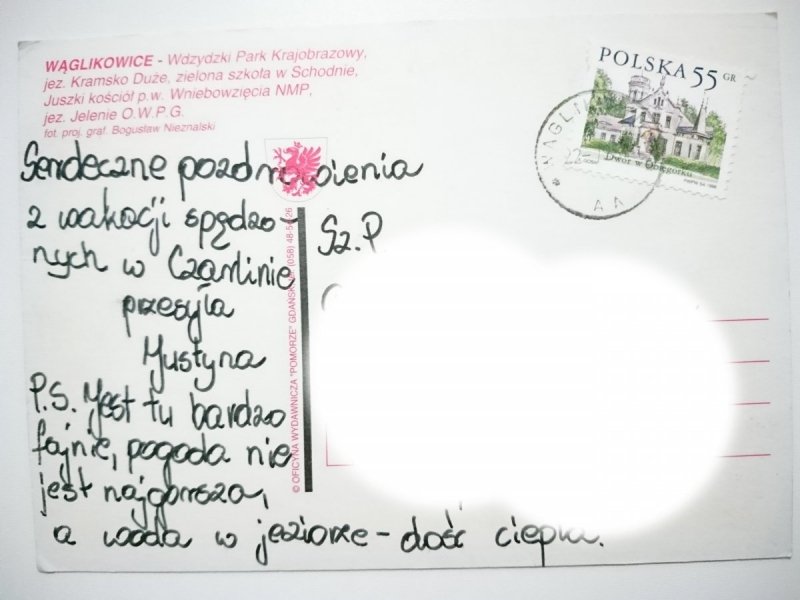 WĄGLIKOWICE - Wdzydzki Park Krajobrazowy,
jez. Kramsko Duże, zielona szkoła w Schodnie,
Juszki kościół p.w. Wniebowzięcia NMP,
jez. Jelenie O.W.P.G.
fot. proj. graf. Bogusław Nieznalski
POLSKA 55 GR
Dwór w
WAGLIK
22-
AA
Serdeczne pozdrowienia
z wakacji spędzo-
nych w Czarlinie
przesyła
Justyna
P.S. Jest tu bardzo
fajnie, pogoda nie
jest najgorsza,
a woda w jeziorze - dość ciepła.
Sz. P.
© OFICYNA WYDAWNICZA "POMORZE" GDAŃSK (058) 48-5 26